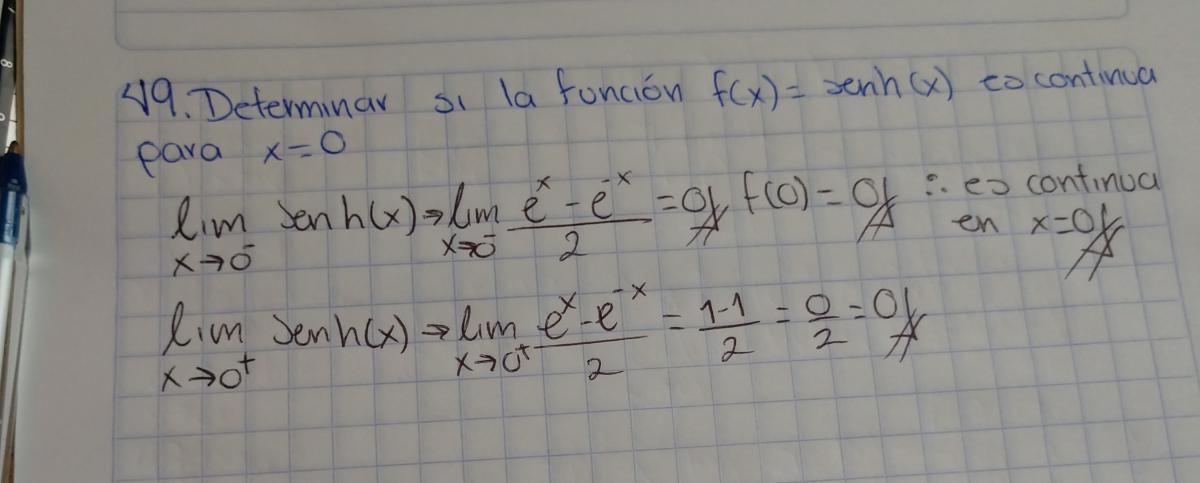 49. Determinar si la función f(x) = senh(x) es continua
para x=0
lim x→0⁻ senh(x) ⇒ lim x→0⁻ (eˣ - e⁻ˣ)/2 = 0 f(0) = 0 ∴ es continua
en x=0
lim x→0⁺ senh(x) ⇒ lim x→0⁺ (eˣ - e⁻ˣ)/2 = (1-1)/2 = 0/2 = 0